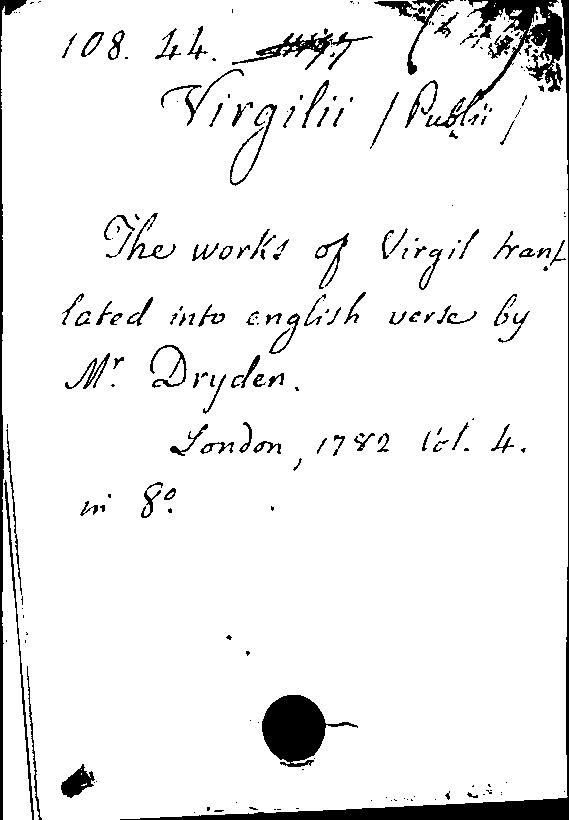 108. 44.
Virgilii / Publii /
The works of Virgil trans
lated into english verse by
Mr. Dryden.
London, 1782 Vol. 4.
in 8º.